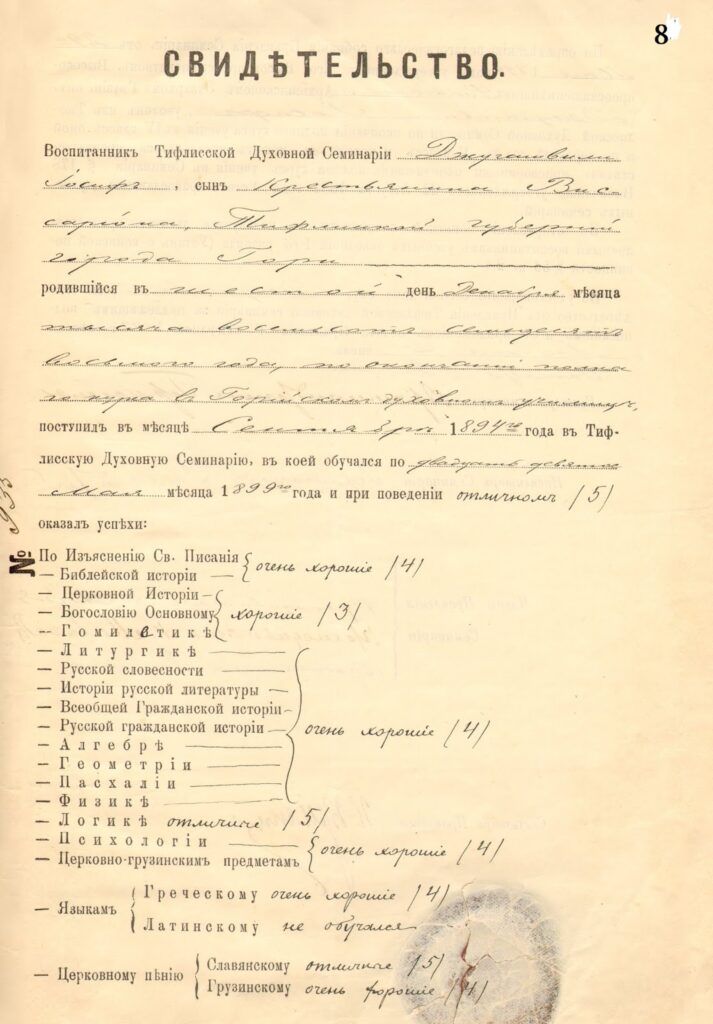 8
СВИДѢТЕЛЬСТВО.
Воспитанникъ Тифлисской Духовной Семинаріи Джугашвили
Іосифъ, сынъ Крестьянина Вис-
саріона, Тифлисской губерніи
города Гори
родившійся въ шестой день Декабря мѣсяца
тысяча восемьсотъ семьдесятъ
восьмого года, по окончаніи полна-
го курса въ Горійскомъ духовномъ училищѣ,
поступилъ въ мѣсяцѣ Сентябрѣ 1894го года въ Тиф-
лисскую Духовную Семинарію, въ коей обучался по двадцать девятое
Мая мѣсяца 1899го года и при поведеніи отличномъ (5)
оказалъ успѣхи:
№
По Изъясненію Св. Писанія
— Библейской исторіи — очень хорошіе (4)
— Церковной Исторіи —
— Богословію Основному хорошіе (3)
— Гомилетикѣ
— Литургикѣ
— Русской словесности
— Исторіи русской литературы —
— Всеобщей Гражданской исторіи —
— Русской гражданской исторіи — очень хорошіе (4)
— Алгебрѣ
— Геометріи
— Пасхаліи
— Физикѣ
— Логикѣ отличные (5)
— Психологіи
— Церковно-грузинскимъ предметамъ очень хорошіе (4)
— Языкамъ
Греческому очень хорошіе (4)
Латинскому не обучался
— Церковному пѣнію
Славянскому отличные (5)
Грузинскому очень хорошіе (4)